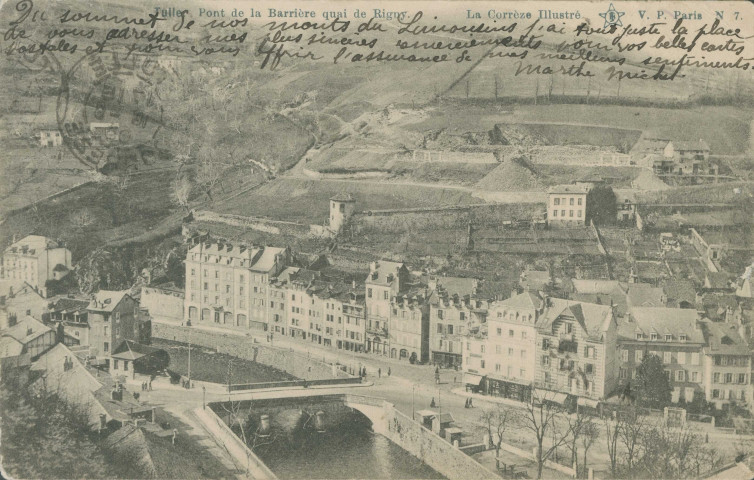 Tulle. Pont de la Barrière quai de Rigny. La Corrèze Illustrée V. P. Paris N 7.
Du sommet de nos monts du Limousins j'ai tout juste la place
de vous adresser mes plus sincères remerciements pour vos belles cartes
postales et pour vous offrir l'assurance de mes meilleurs sentiments.
Marthe Michel